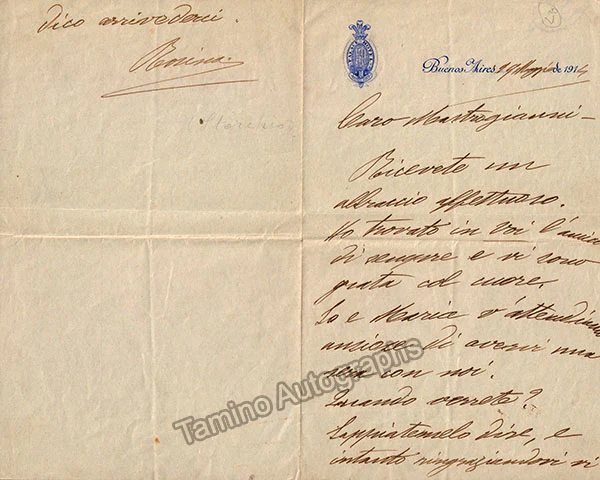 Buenos Aires 29 Maggio de 1914
Caro Mastrogianni -
Ricevete un
abbraccio affettuoso.
Ho trovato in voi l'amico
di sempre e vi sono
grata col cuore.
Io e Maria v'attendiamo
ansiose di avervi una
sera con noi.
Quando verrete?
Sappiatemelo dire, e
intanto ringraziandovi vi
dico arrivederci.
Rosina.
Tamino Autographs